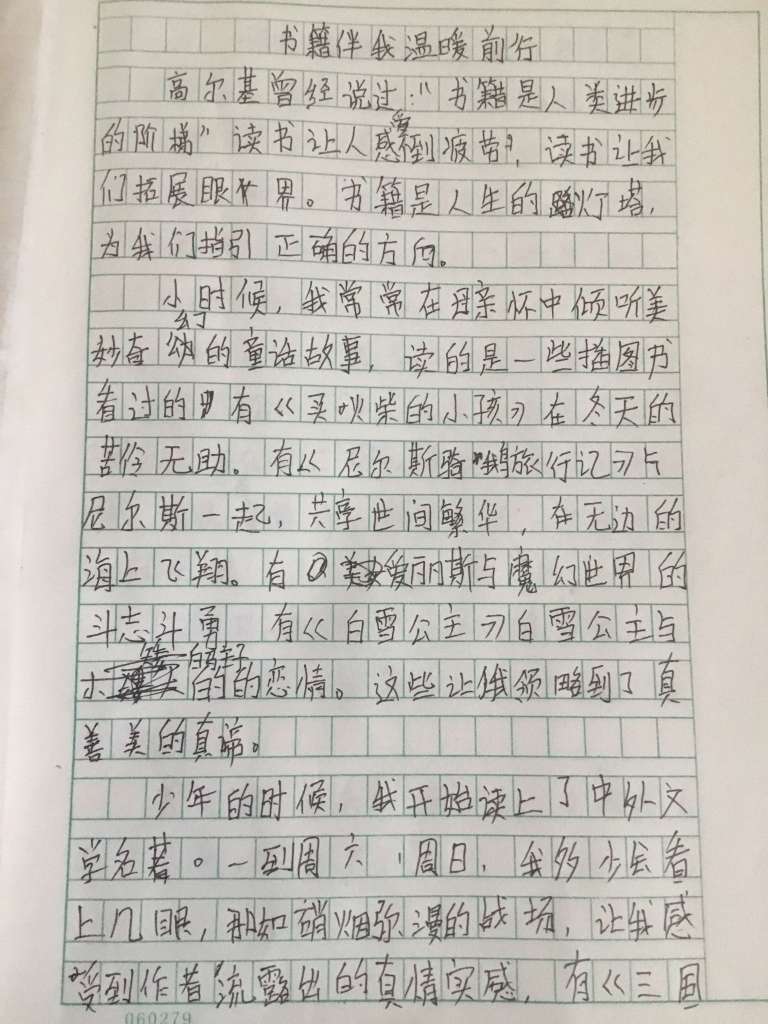 书籍伴我温暖前行
高尔基曾经说过:“书籍是人类进步
的阶梯”读书让人感受到疲劳,读书让我
们拓展眼界。书籍是人生的灯塔,
为我们指引正确的方向。
小时候,我常常在母亲怀中倾听美
妙奇幻的童话故事,读的是一些插图书
看过的有《买火柴的小孩》在冬天的
苦伶无助。有《尼尔斯骑鹅旅行记》与
尼尔斯一起,共享世间繁华,在无边的
海上飞翔。有爱丽斯与魔幻世界的
斗志斗勇 有《白雪公主》白雪公主与
白马王子的的恋情。这些让我领略到了真
善美的真谛。
少年的时候,我开始读上了中外文
学名著。一到周六、周日,我多少会看
上几眼,那如硝烟弥漫的战场,让我感
受到作者流露出的真情实感,有《三国
060279